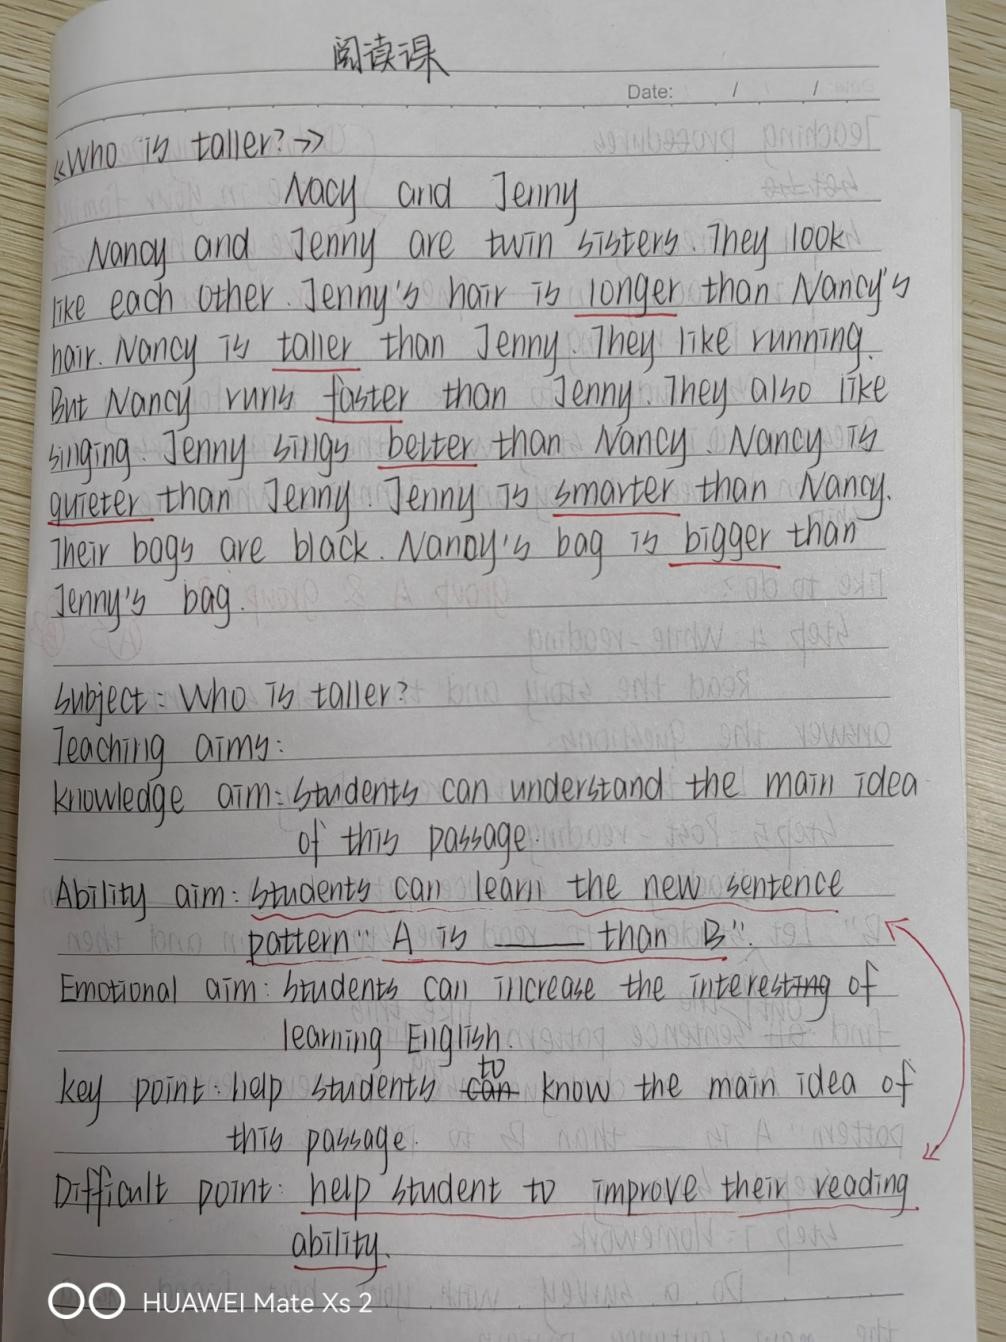 阅读课
Date: / /
《Who is taller?》
Nacy and Jenny
Nancy and Jenny are twin sisters. They look
like each other. Jenny's hair is longer than Nancy's
hair. Nancy is taller than Jenny. They like running.
But Nancy runs faster than Jenny. They also like
singing. Jenny sings better than Nancy. Nancy is
quieter than Jenny. Jenny is smarter than Nancy.
Their bags are black. Nancy's bag is bigger than
Jenny's bag.
Subject: Who is taller?
Teaching aims:
knowledge aim: students can understand the main idea
of this passage.
Ability aim: students can learn the new sentence
pattern "A is ____ than B".
Emotional aim: students can increase the interesting of
learning English.
key point: help students can to know the main idea of
this passage.
Difficult point: help student to improve their reading
ability.
HUAWEI Mate Xs 2